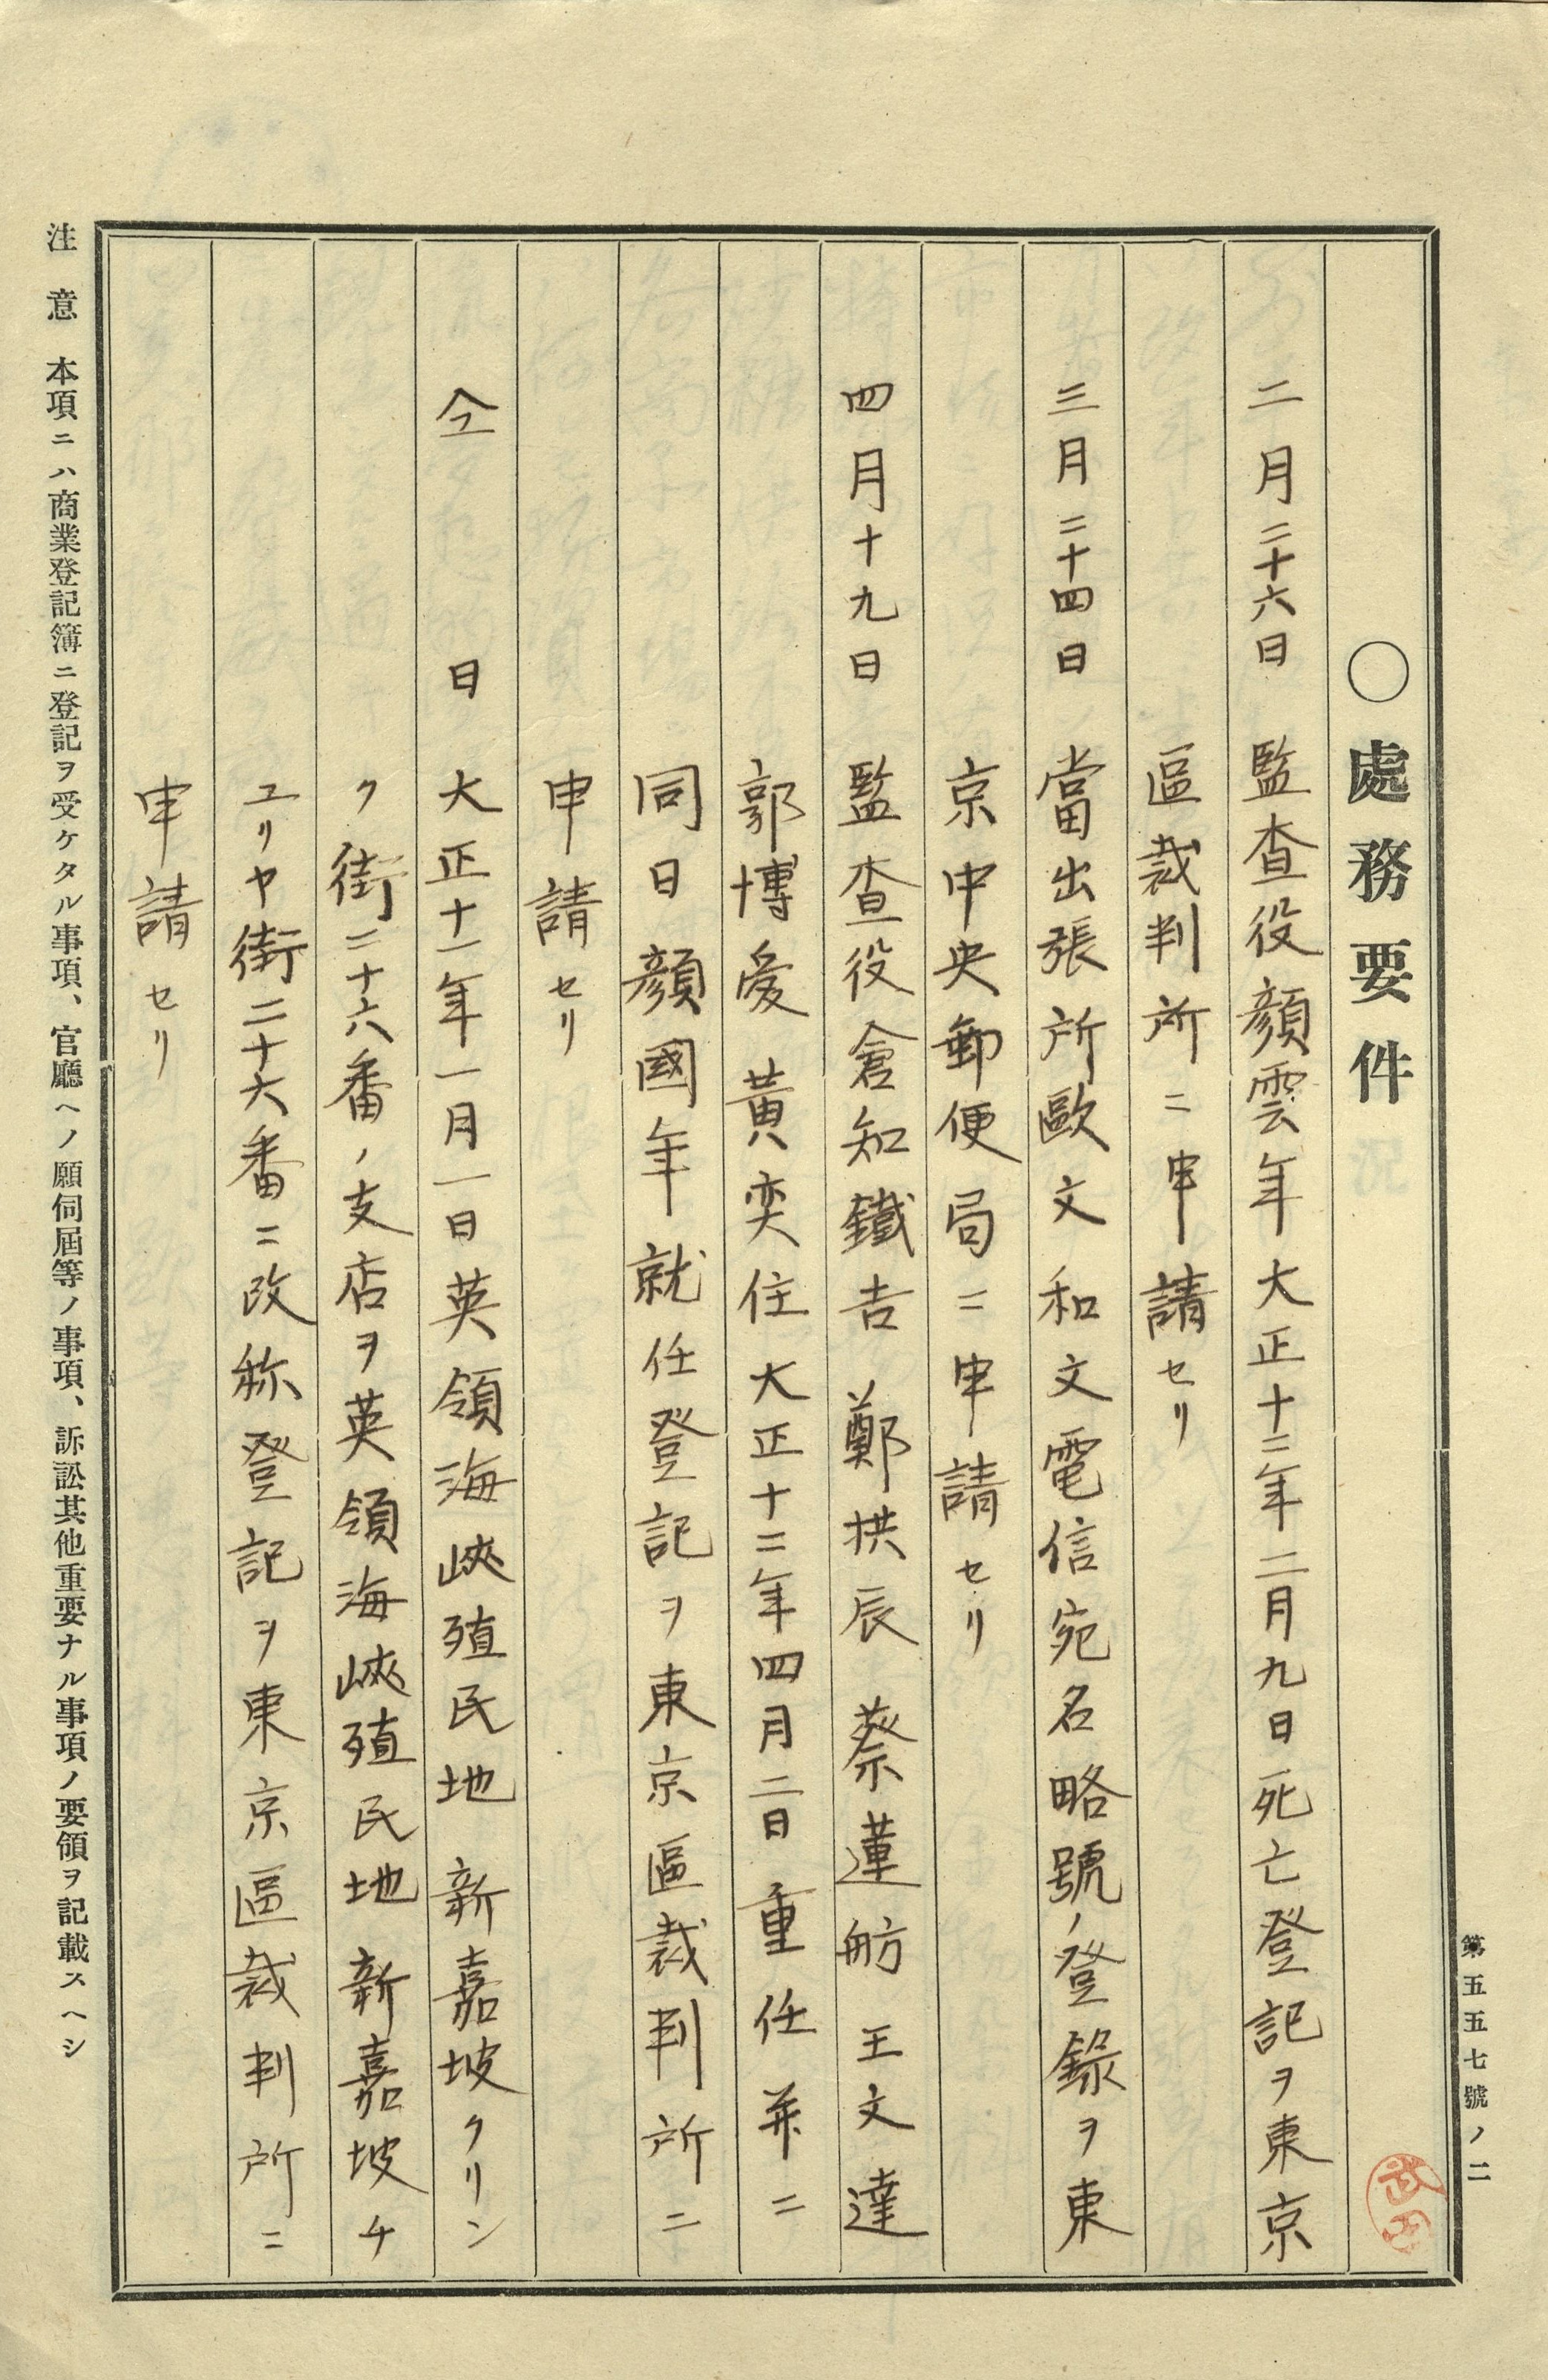 第五五七號ノ二
〇處務要件
二月二十六日 監査役顏雲年大正十二年二月九日死亡登記ヲ東京
區裁判所ニ申請セリ
三月二十四日 當出張所歐文和文電信宛名略號ノ登錄ヲ東
京中央郵便局ニ申請セリ
四月十九日 監査役倉知鐵吉 鄭拱辰 蔡蓮舫 王文達
郭博愛 黃奕住大正十二年四月二日重任並ニ
同日顏國年就任登記ヲ東京區裁判所ニ
申請セリ
仝日 大正十一年一月一日英領海峽殖民地新嘉坡クリン
ク街二十六番ノ支店ヲ英領海峽殖民地新嘉坡チ
ユリヤ街二十六番ニ改称登記ヲ東京區裁判所ニ
申請セリ
注意 本項ニハ商業登記簿ニ登記ヲ受ケタル事項、官廳ヘノ願伺屆等ノ事項、訴訟其他重要ナル事項ノ要領ヲ記載スヘシ